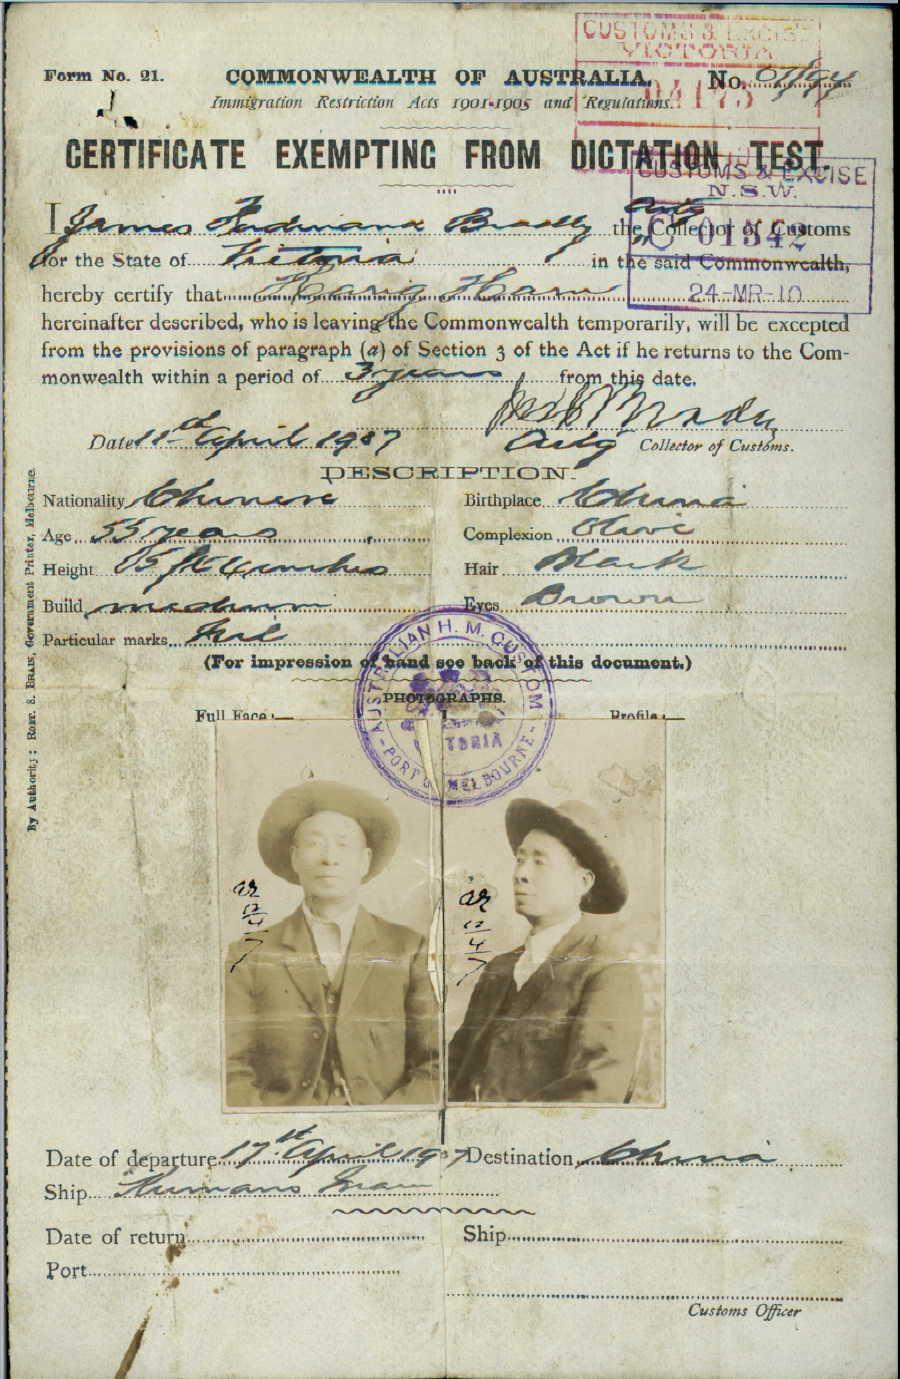 CUSTOMS & EXCISE
VICTORIA
Form No. 21.
COMMONWEALTH OF AUSTRALIA.
No.
Immigration Restriction Acts 1901-1905 and Regulations.
CERTIFICATE EXEMPTING FROM DICTATION TEST.
CUSTOMS & EXCISE
N.S.W.
C 01342
24-MR-10
I James Ferdinand Bradly Actg the Collector of Customs
for the State of Victoria in the said Commonwealth,
hereby certify that Ham
hereinafter described, who is leaving the Commonwealth temporarily, will be excepted
from the provisions of paragraph (a) of Section 3 of the Act if he returns to the Com-
monwealth within a period of 3 years from this date.
Date 11th April 1907
Actg Collector of Customs.
DESCRIPTION.
Nationality Chinese
Birthplace China
Age 55 years
Complexion Olive
Height 5 ft 4 inches
Hair Black
Build medium
Eyes Brown
Particular marks Nil
(For impression of hand see back of this document.)
PHOTOGRAPHS.
Full Face:—
Profile:—
AUSTRALIAN H. M. CUSTOM
VICTORIA
PORT OF MELBOURNE
12/4/7
12/4/7
Date of departure 17th April 1907
Destination China
Ship
Date of return
Ship
Port
Customs Officer
By Authority: ROBT. S. BRAIN, Government Printer, Melbourne.